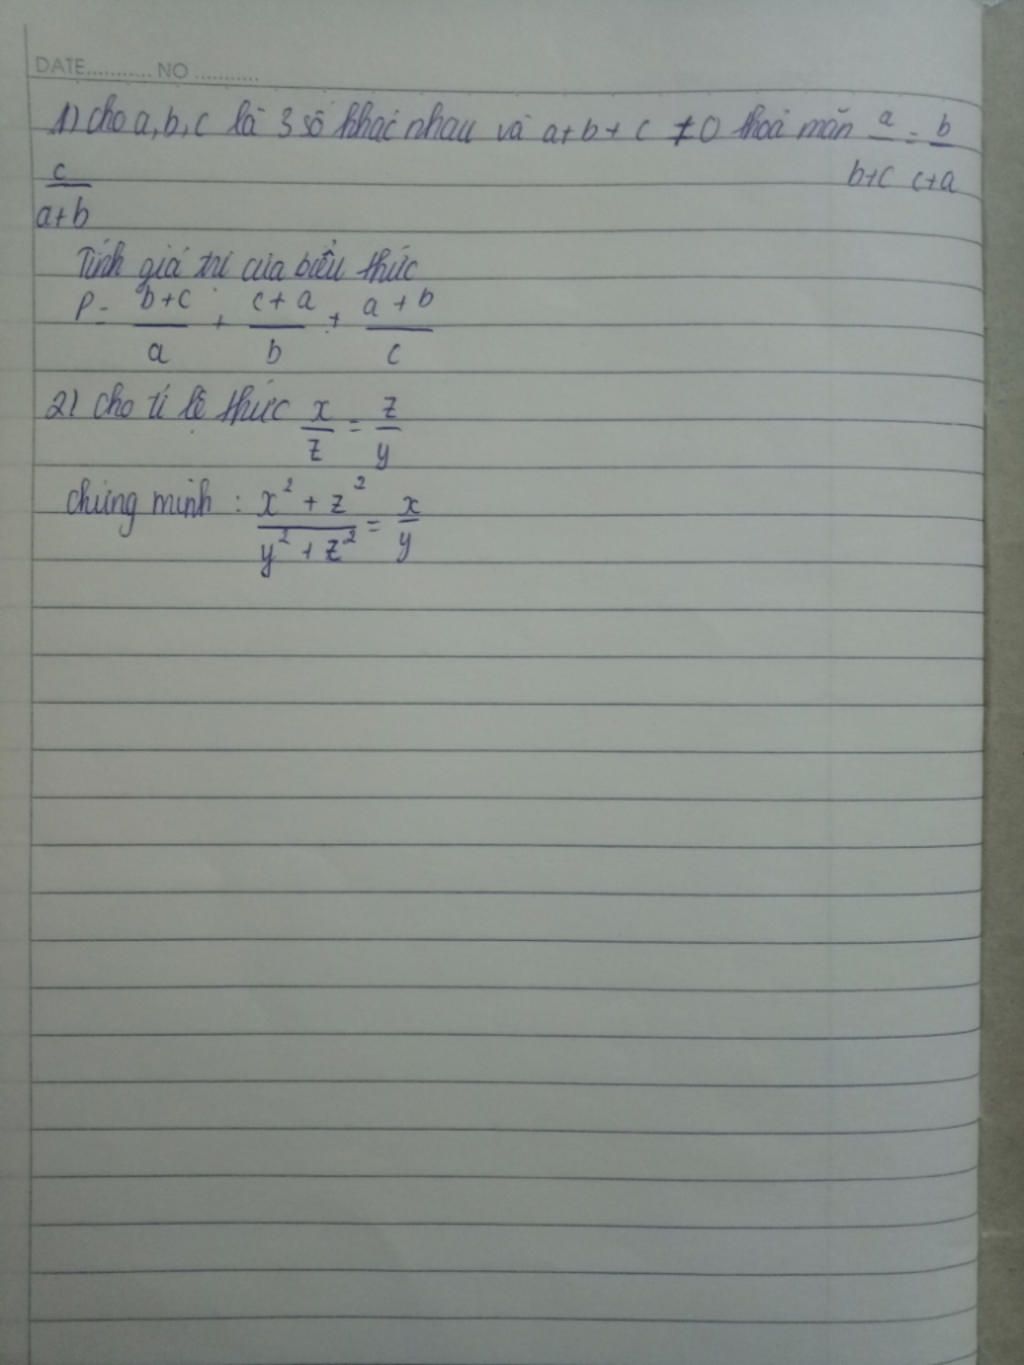 DATE........... NO ...........
1) cho a, b, c là 3 số khác nhau và a+b+c ≠0 thoả mãn a/b+c = b/c+a
c/a+b
Tính giá trị của biểu thức
P = b+c/a + c+a/b + a+b/c
2) cho tỉ lệ thức x/z = z/y
chứng minh : x²+z²/y²+z² = x/y